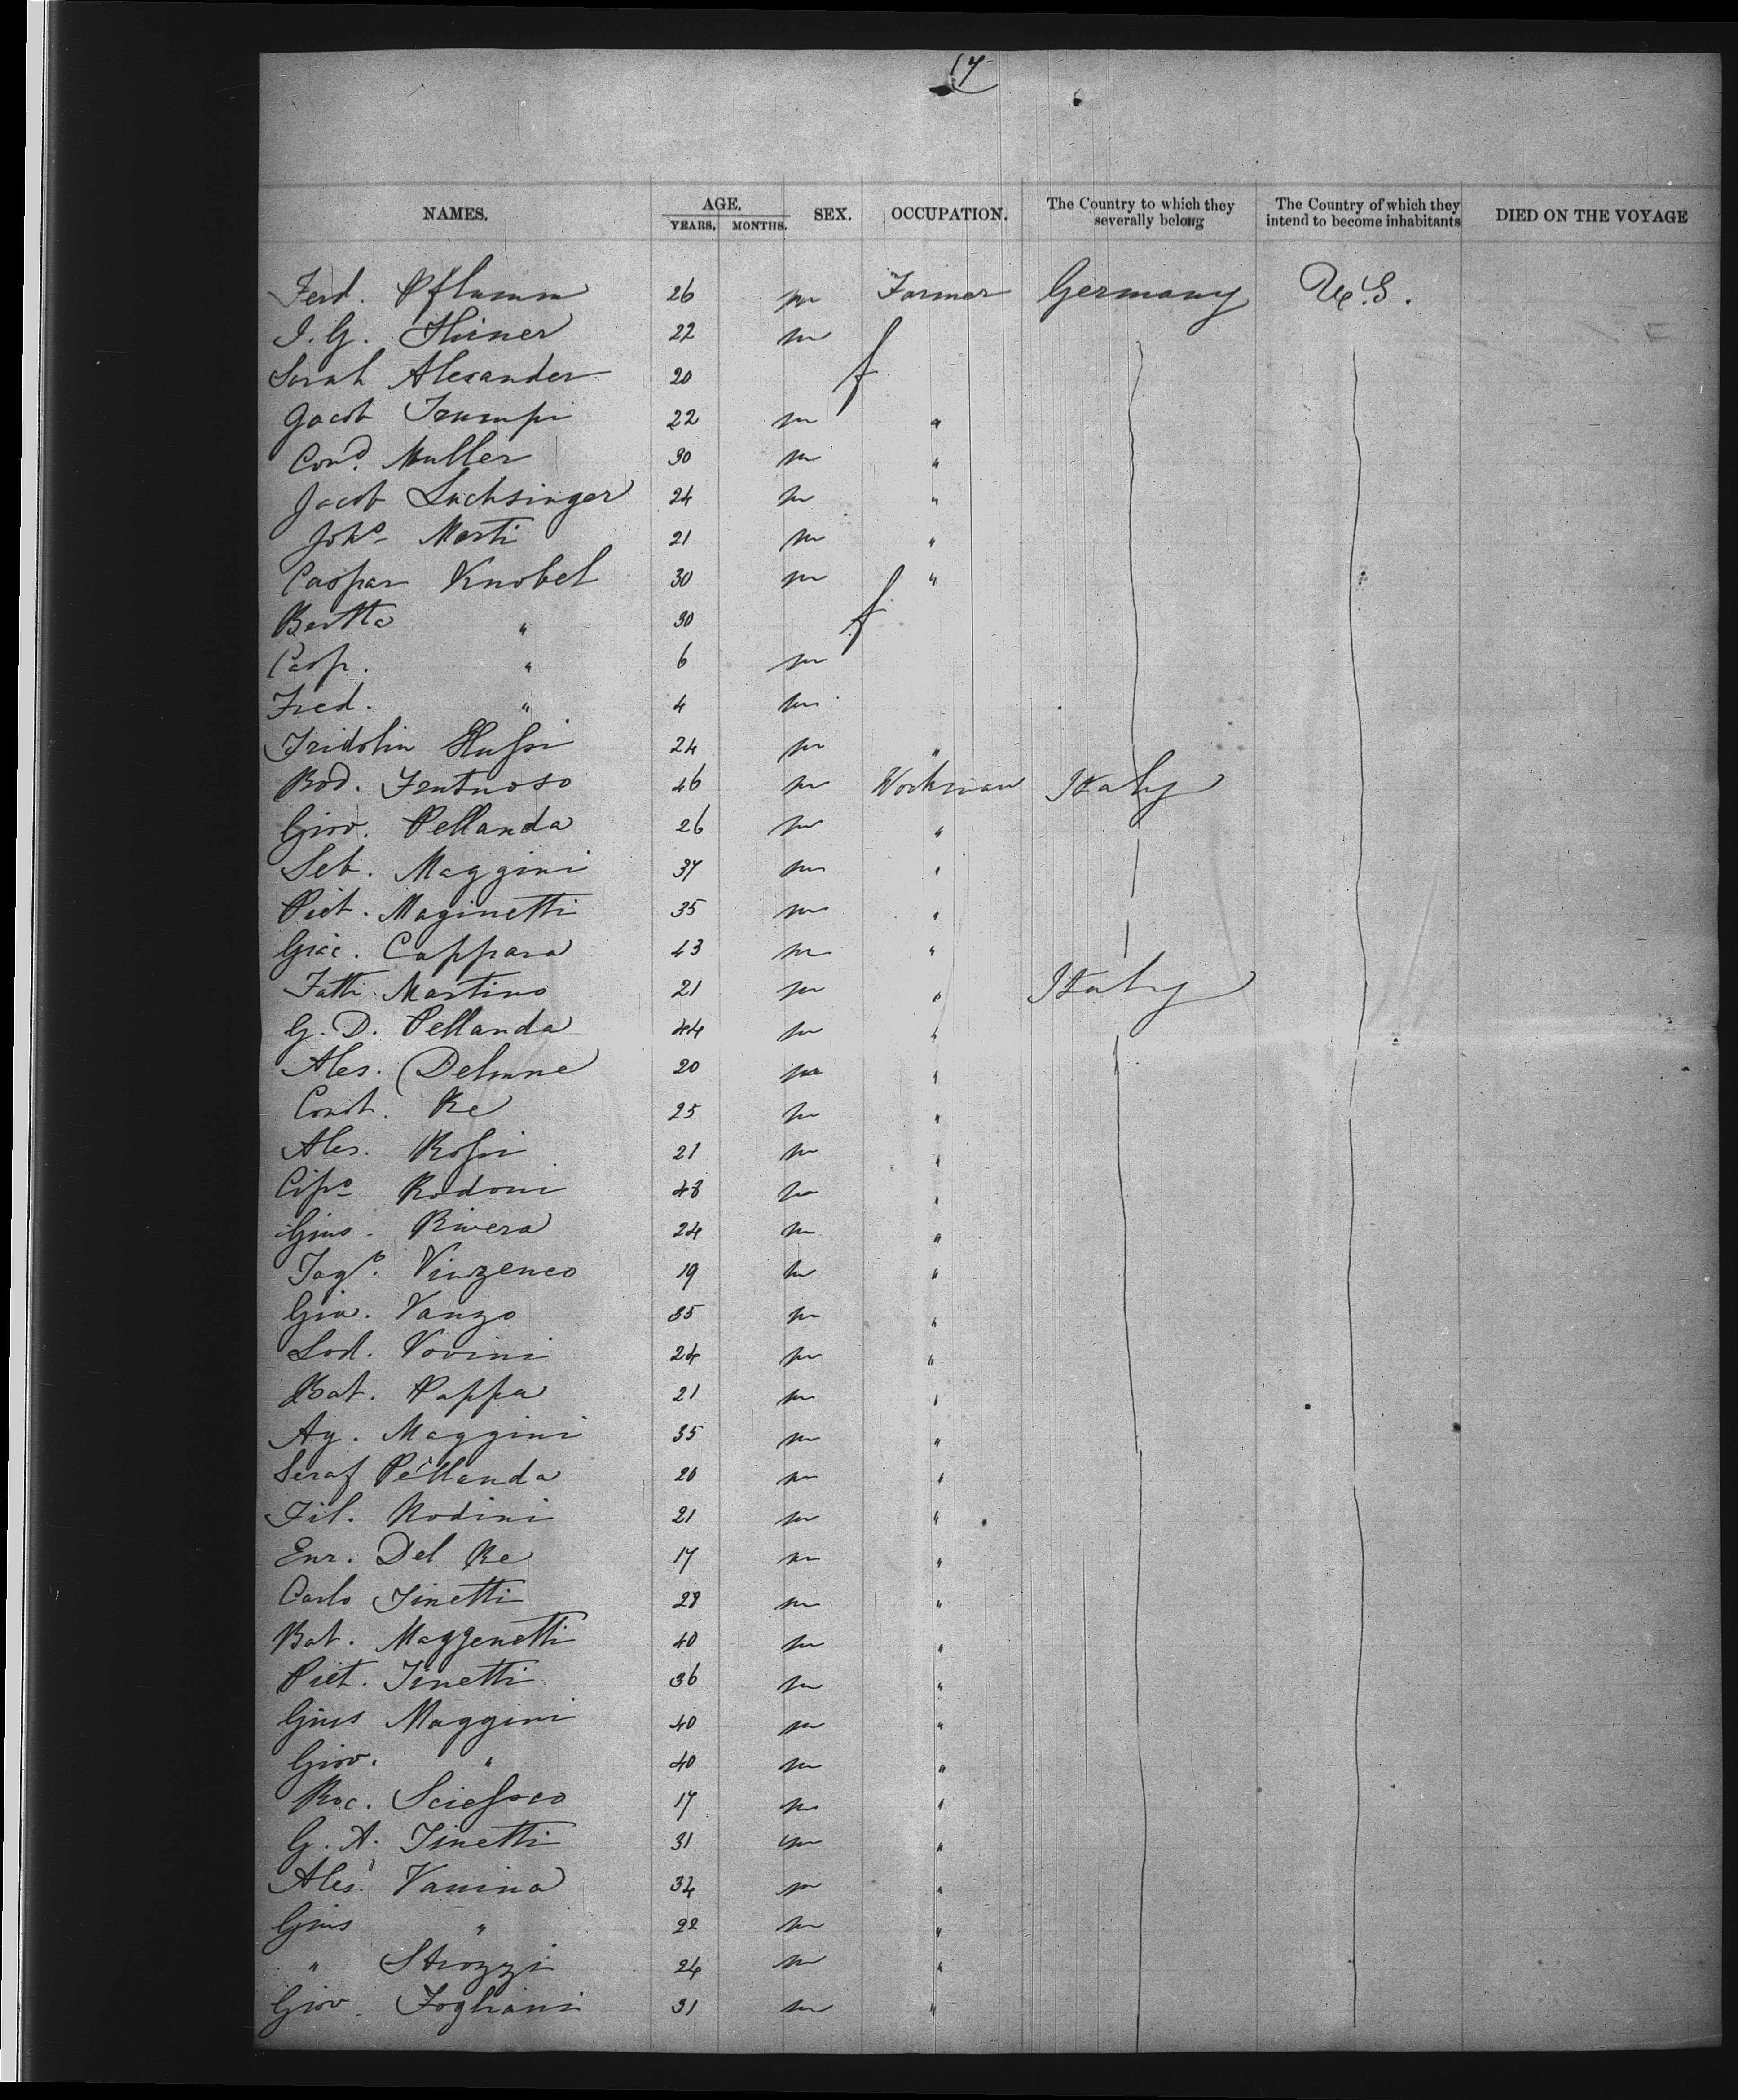 17
NAMES. AGE. YEARS. MONTHS. SEX. OCCUPATION. The Country to which they severally belong The Country of which they intend to become inhabitants DIED ON THE VOYAGE
Ferd. Pflumm 26 m Farmer Germany U.S.
I. G. 22 m
Sarah Alexander 20 f
Jacob Trumpi 22 m "
Conᵈ. Muller 30 m "
Jacob Luchsinger 24 m "
Johˢ Marti 21 m "
Caspar Knobel 30 m "
Bertha " 30 f
Casp. " 6 m
Fred. " 4 m
Fridolin Hussi 24 m "
Rod. Frutuoso 46 m Workman Italy
Giov. Pellanda 26 m "
Seb. Maggini 37 m "
Piet. Maginetti 35 m "
Giac. Cappara 43 m "
Fatti Martino 21 m " Italy
G. D. Pellanda 44 m "
Ales. 20 m "
Const. Re 25 m "
Ales. Rossi 21 m "
Cipº Rodoni 48 m "
Gius. Rivera 24 m "
Vinzenco 19 m "
Gia. Vanzo 35 m "
Lod. Vovini 24 m "
Bat. Pappa 21 m "
Ag. Maggini 35 m "
Seraf Pellanda 20 m "
Fil. Rodini 21 m "
Enr. Del Re 17 m "
Carlo Tinetti 28 m "
Bat. Maggenetti 40 m "
Piet. Tinetti 36 m "
Gius Maggini 40 m "
Giov. " 40 m "
Roc. 17 m "
G. A. Tinetti 31 m "
Ales. Vanina 34 m "
Gius " 22 m "
" Strozzi 24 m "
Giov. Fogliani 31 m "